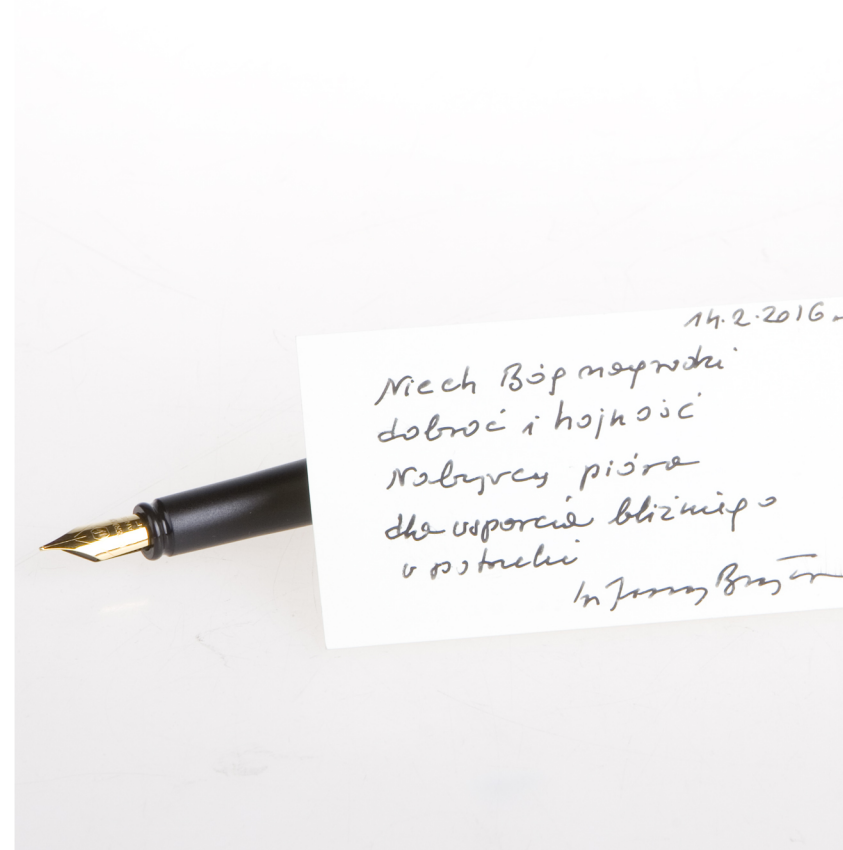 14.2.2016
Niech Bóg nagrodzi
dobroć i hojność
Nabywcy pióra
dla wsparcia bliźniego
w potrzebie